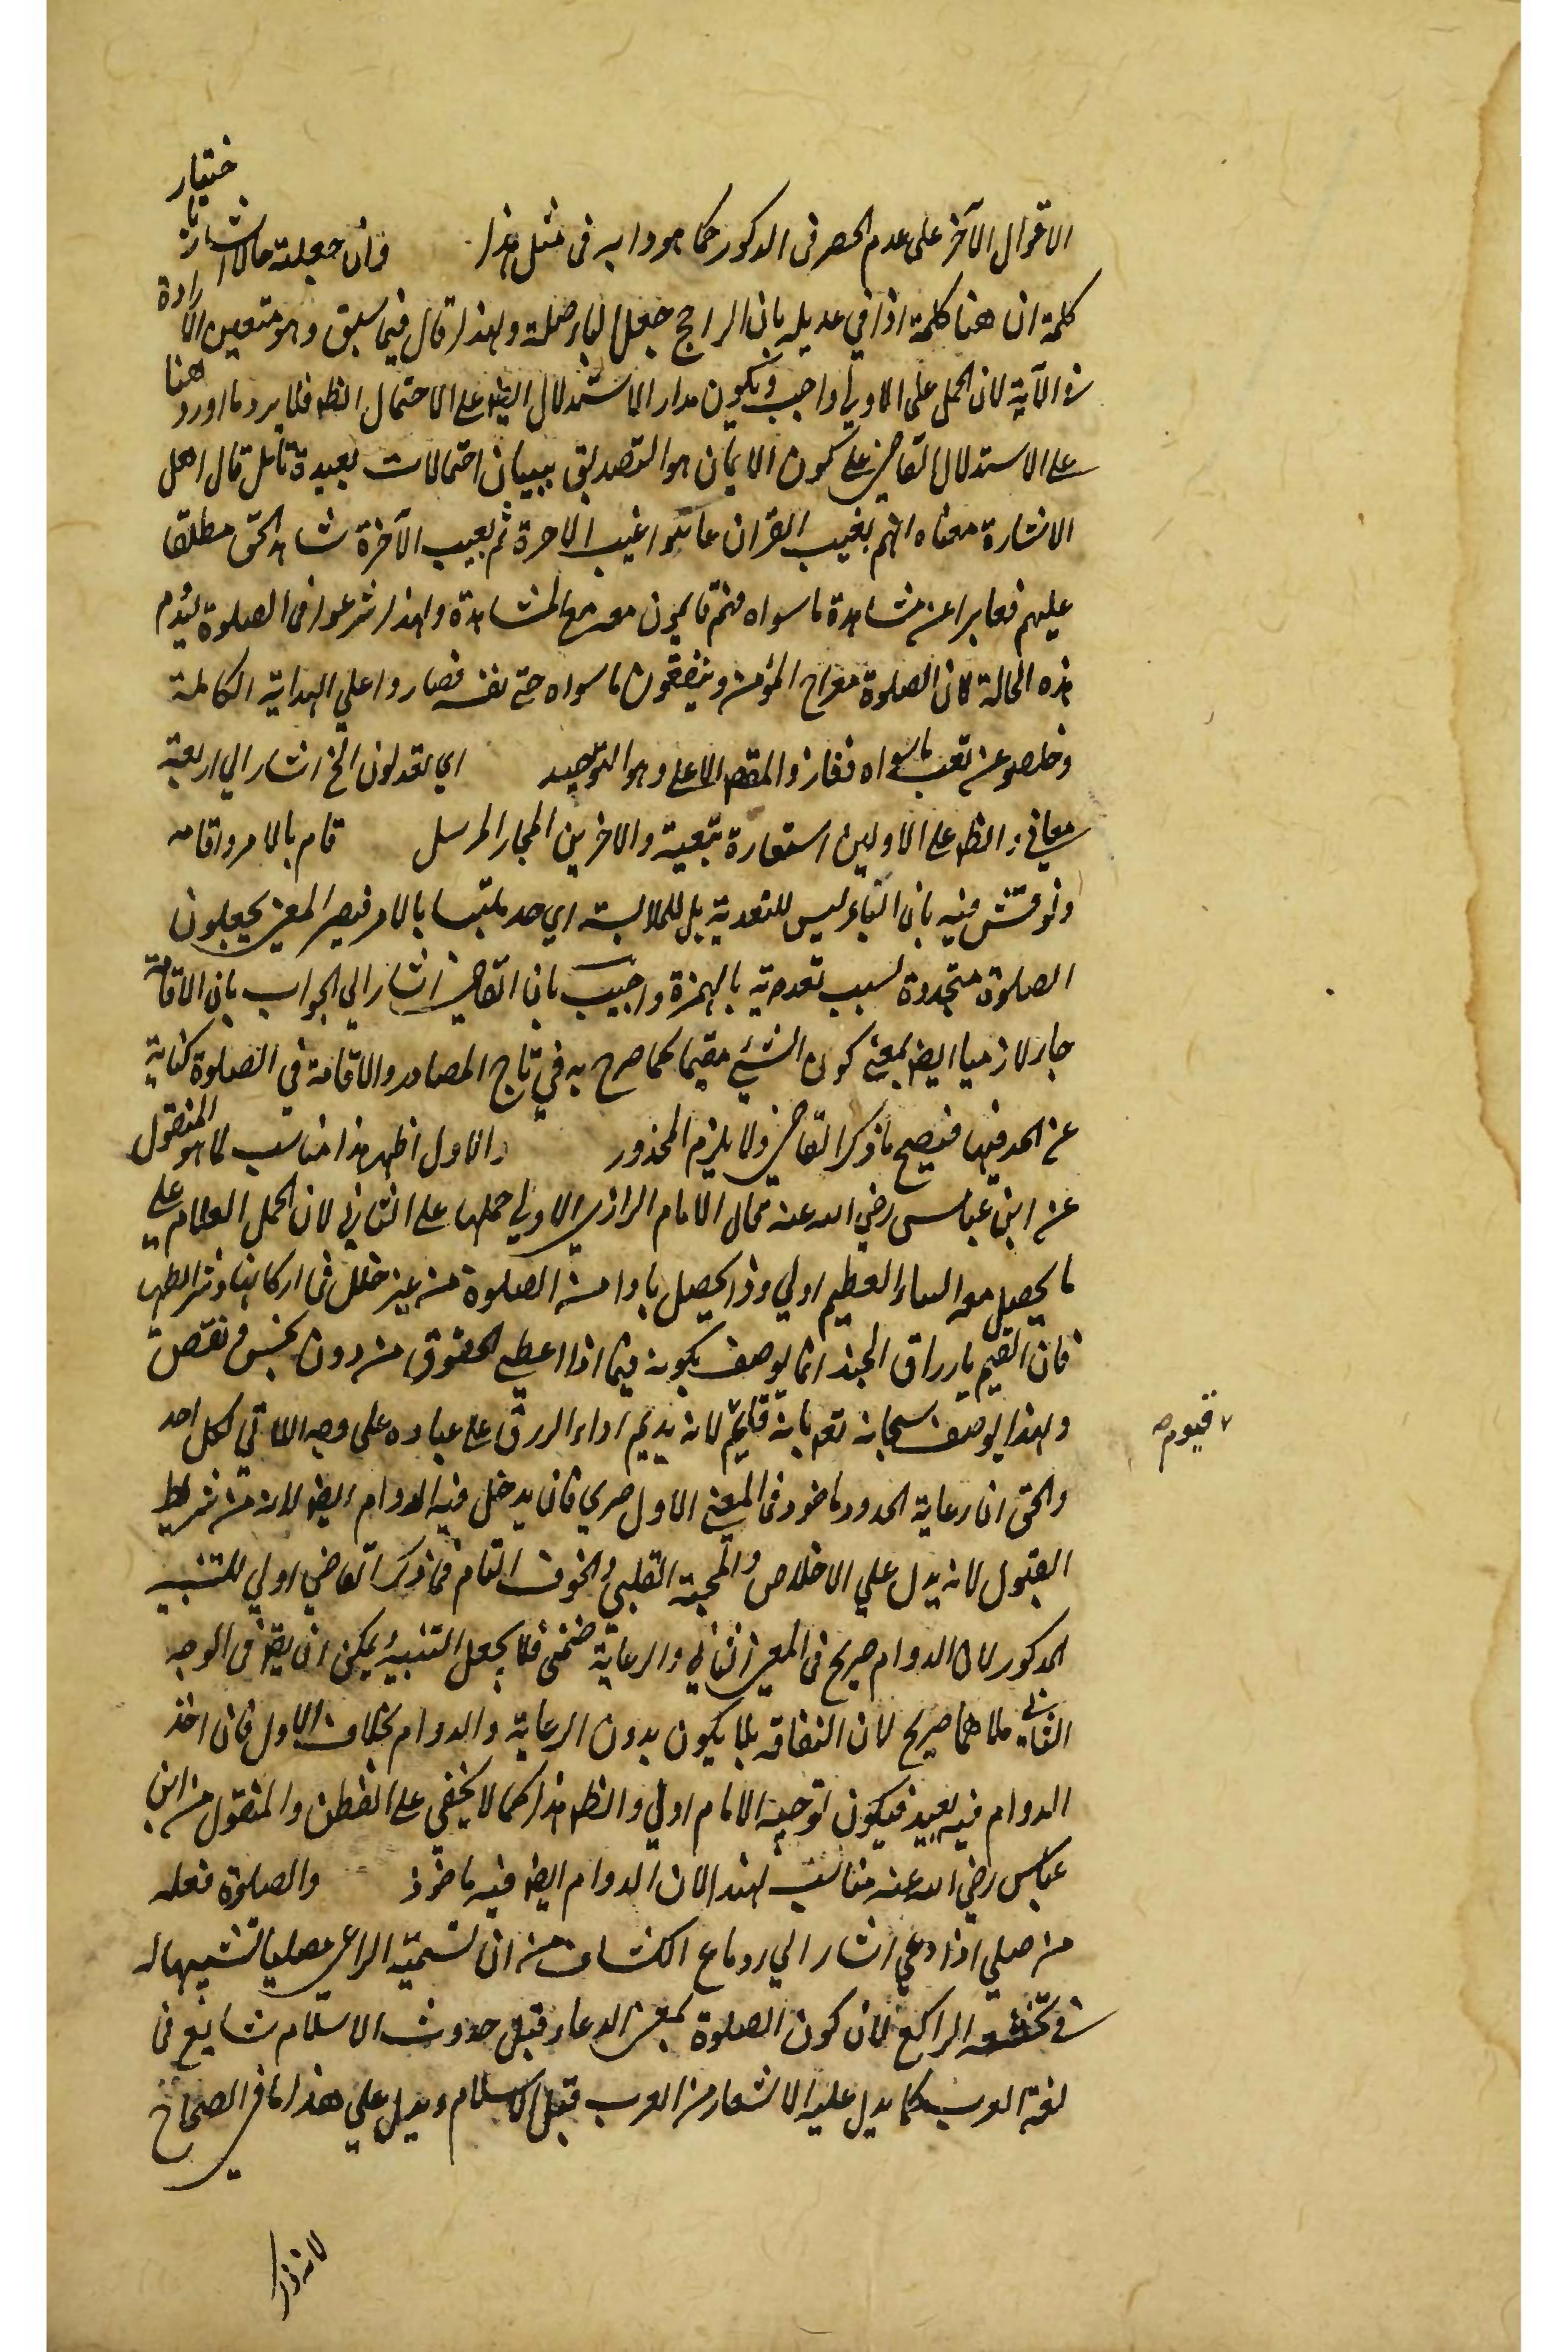 الاقوال الآخر على عدم الحصر فى المدكور كما هو دابه فى مثل هذا وان جعلته حالا اشارة باختيار
كلمة ان هنا كلمة اذا في عديله بان الراجح جعل الباء صلة ولهذا قال فيما سبق وهو متعين الارادة
فى الآية لان الحمل على الاولي واجب ويكون مدار الاستدلال ايضا على الاحتمال الظ فلا يرد ما اورد هنا
على الاستدلال القاضى على كون الايمان هو التصديق ببيان احتمالات بعيدة تامل قال اهل
الاشارة معناه انهم بغيب القران عاينوا غيب الاخرة ثم بغيب الآخرة شاهد الحق مطلقا
عليهم فعابرا عن مشاهدة ما سواه فهم قايمون معه مع المشاهدة ولهذا شرعوا فى الصلوة ليدوم
هذه الحالة لان الصلوة معراج المؤمن وينفقون ما سواه حتى نفسه فصاروا على الهداية الكاملة
وخلصو عن تعب ما سواه ففاز والمقصد الاعلى وهو التوحيد اي يعدلون الخ اشار الي اربعة
معاني والظ على الاولين استعارة تبعية والاخرين المجاز المرسل قام بالامر واقامه
ونوقش فيه بان الباء ليس للتعدية بل للملابسة اي جد ملتبسا بالامر فيصير المعنى يجعلون
الصلوة متجددة بسبب تعديته بالهمزة واجيب بان القاضى اشار الي الجواب بان الاقامة
جاء لازميا ايضا بمعنى كون الشيئ مقيما كما صرح به في تاج المصادر والاقامة في الصلوة كناية
عن الجد فيها فيصح ما ذكر القاضى ولا يلزم المحذور والاول اظهر هذا مناسب لما هو المنقول
عن ابن عباس رضي الله عنه قال الامام الرازي الاولي حملها على الثاني لان الحمل الكلام على
ما يحصل معه الثناء العظيم اولي وذا يحصل بادامة الصلوة من غير خلل في اركانها وشرائطها
فان القيم بارزاق الجند انما يوصف بكونه قيما اذا اعطى الحقوق من دون بخس ونقص
ولهذا يوصف سبحانه تعه بانه قايم لانه يديم اداء الرزق على عباده على وجه اللائق لكل احد
قيوم
والحق ان رعاية الحدود ماخوذ فى المعنى الاول صري فان يدخل فيه الدوام ايضا لانه من شرايط
القبول لانه يدل علي الاخلاص والمحبة القلبى والخوف التام فما ذكر القاضي اولي للتنبيه
المدكور لان الدوام صريح فى المعنى الثاني والرعاية ضمنى فلا يجعل التنبيه ويمكن ان يق فى الوجه
الثاني كلاهما صريح لان النفاقه بلا يكون بدون الرعاية والدوام بخلاف الاول فان اخذ
الدوام فيه بعيد فيكون توجيه الامام اولي والظ هذا كما لا يخفى على الفطن والمنقول من ابن
عباس رضي الله عنه مناسب لهذا لان الدوام ايضا فيه ماخوذ والصلوة فعله
من صلي اذا دعي اشار الي رد ما ع الكشاف من ان تسمية الداعي مصليا تشبيها له
فى تخشعه الراكع لان كون الصلوة بمعنى الدعاء قبل حدوث الاسلام شايع فى
لغة العرب كما يدل عليه الاشعار من العرب قبل الاسلام ويدل علي هذا ما فى الصحاح
لانه ذكر